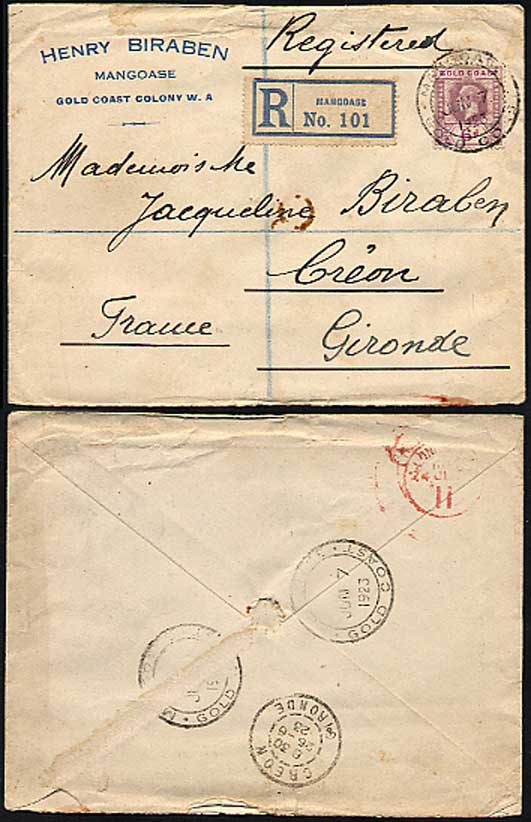 HENRY BIRABEN
MANGOASE
GOLD COAST COLONY W. A
Registered
R
MANGOASE
No. 101
GOLD COAST
Mademoiselle
Jacqueline Biraben
Créon
Gironde
France
GOLD COAST
JUN 7
1923
GOLD
CREON
9 30
26 6
23
GIRONDE
24 JU